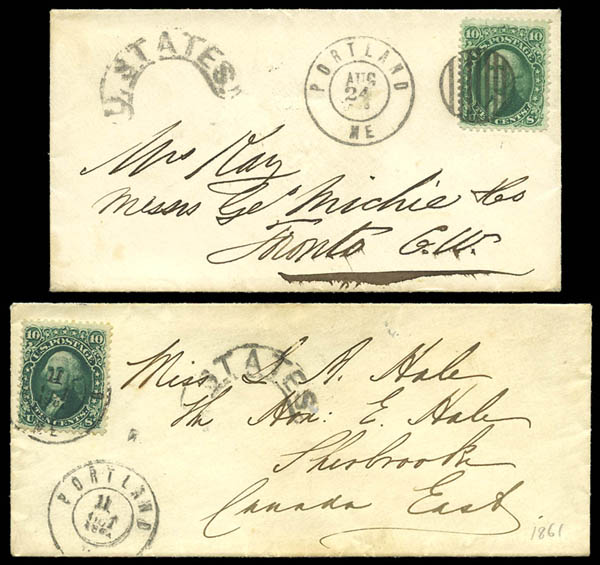 U. STATES
PORTLAND
AUG
24
ME
10 10
U.S. POSTAGE
TEN CENTS
U S
Mrs Kay
Messrs Geo Michie & Co
Toronto C.W.
10 10
U.S. POSTAGE
11
ME
TEN CENTS
U S
STATES
Miss L. A. Hale
Hon: E. Hale
Sherbrooke
Canada East.
PORTLAND
11
1861
1861